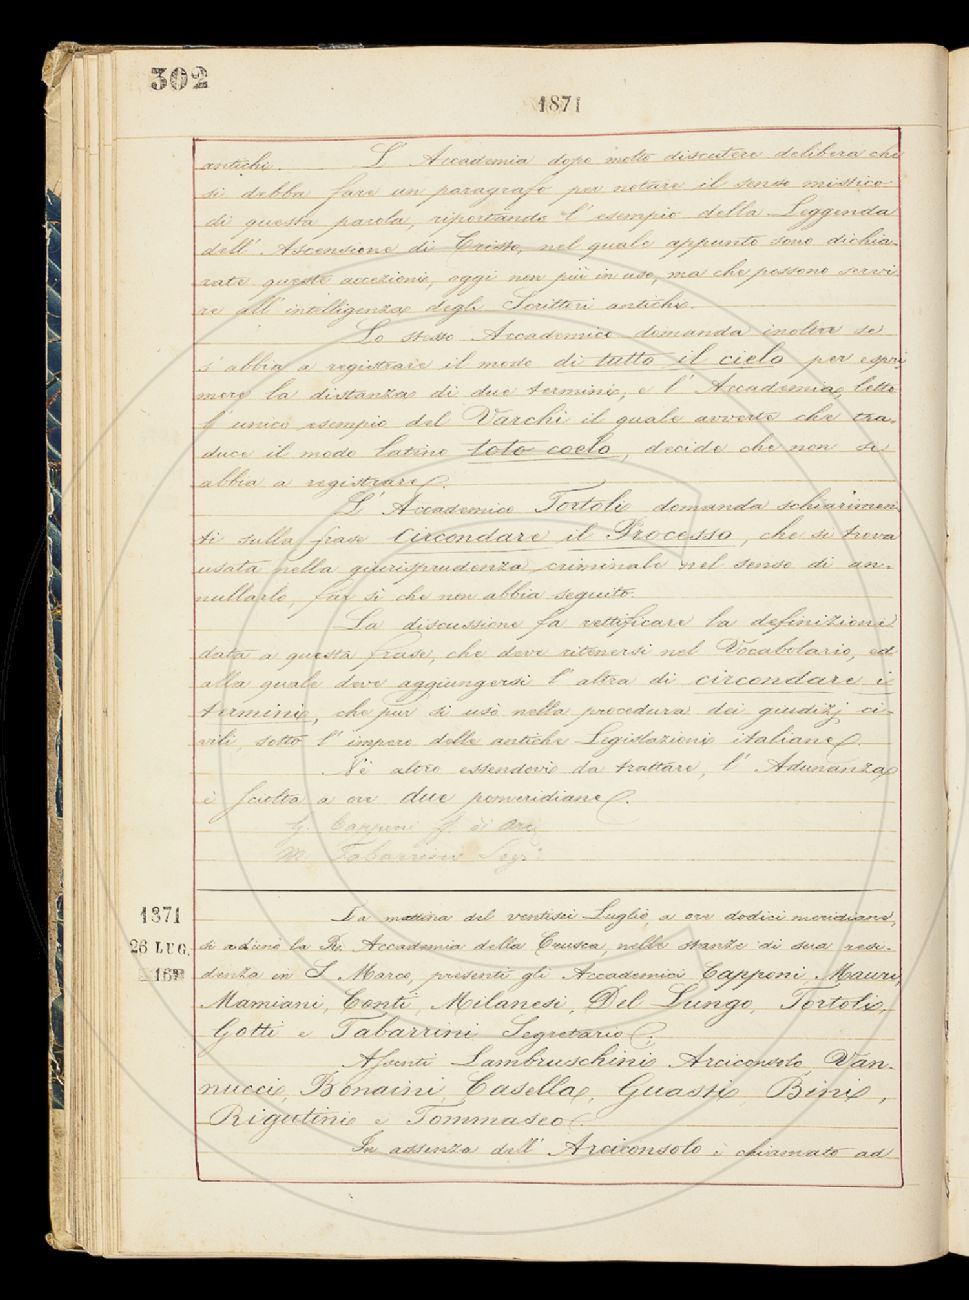 302
1871
antichi. L'Accademia dopo molto discutere delibera che
si debba fare un paragrafo per notare il senso mistico
di questa parola, riportando l'esempio della Leggenda
dell'Ascensione di Cristo, nel quale appunto sono dichia-
rate queste accezioni, oggi non più in uso, ma che possono servi
re all'intelligenza degli Scrittori antichi.
Lo stesso Accademico domanda inoltre se
s'abbia a registrare il modo di tutto il cielo per espri
mere la distanza di due termini, e l'Accademia, letto
l'unico esempio del Varchi il quale avverte che tra-
duce il modo latino toto coelo, decide che non si
abbia a registrare.
L'Accademico Tortoli domanda schiarimen
ti sulla frase Circondare il Processo, che si trova
usata nella giurisprudenza criminale nel senso di an-
nullarlo, far sì che non abbia seguito.
La discussione fa rettificare la definizione
data a questa frase, che deve ritenersi nel Vocabolario, ed
alla quale deve aggiungersi l'altra di circondare i
termini, che pur si usò nella procedura dei giudizj ci-
vili, sotto l'impero delle antiche Legislazioni italiane.
Nè altro essendovi da trattare, l'Adunanza
è sciolta a ore due pomeridiane.
G. Capponi
M. Tabarrini Segr.
1871
26 LUG.
La mattina del ventisei Luglio a ore dodici meridiane,
si adunò la R. Accademia della Crusca, nelle stanze di sua resi-
denza in S. Marco, presenti gli Accademici Capponi, Mauri,
Mamiani, Conti, Milanesi, Del Lungo, Tortoli,
Gotti e Tabarrini Segretario.
Assenti Lambruschini Arciconsolo, Van-
nucci, Bonaini, Casella, Guasti, Bini,
Rigutini e Tommaseo.
In assenza dell'Arciconsolo è chiamato ad